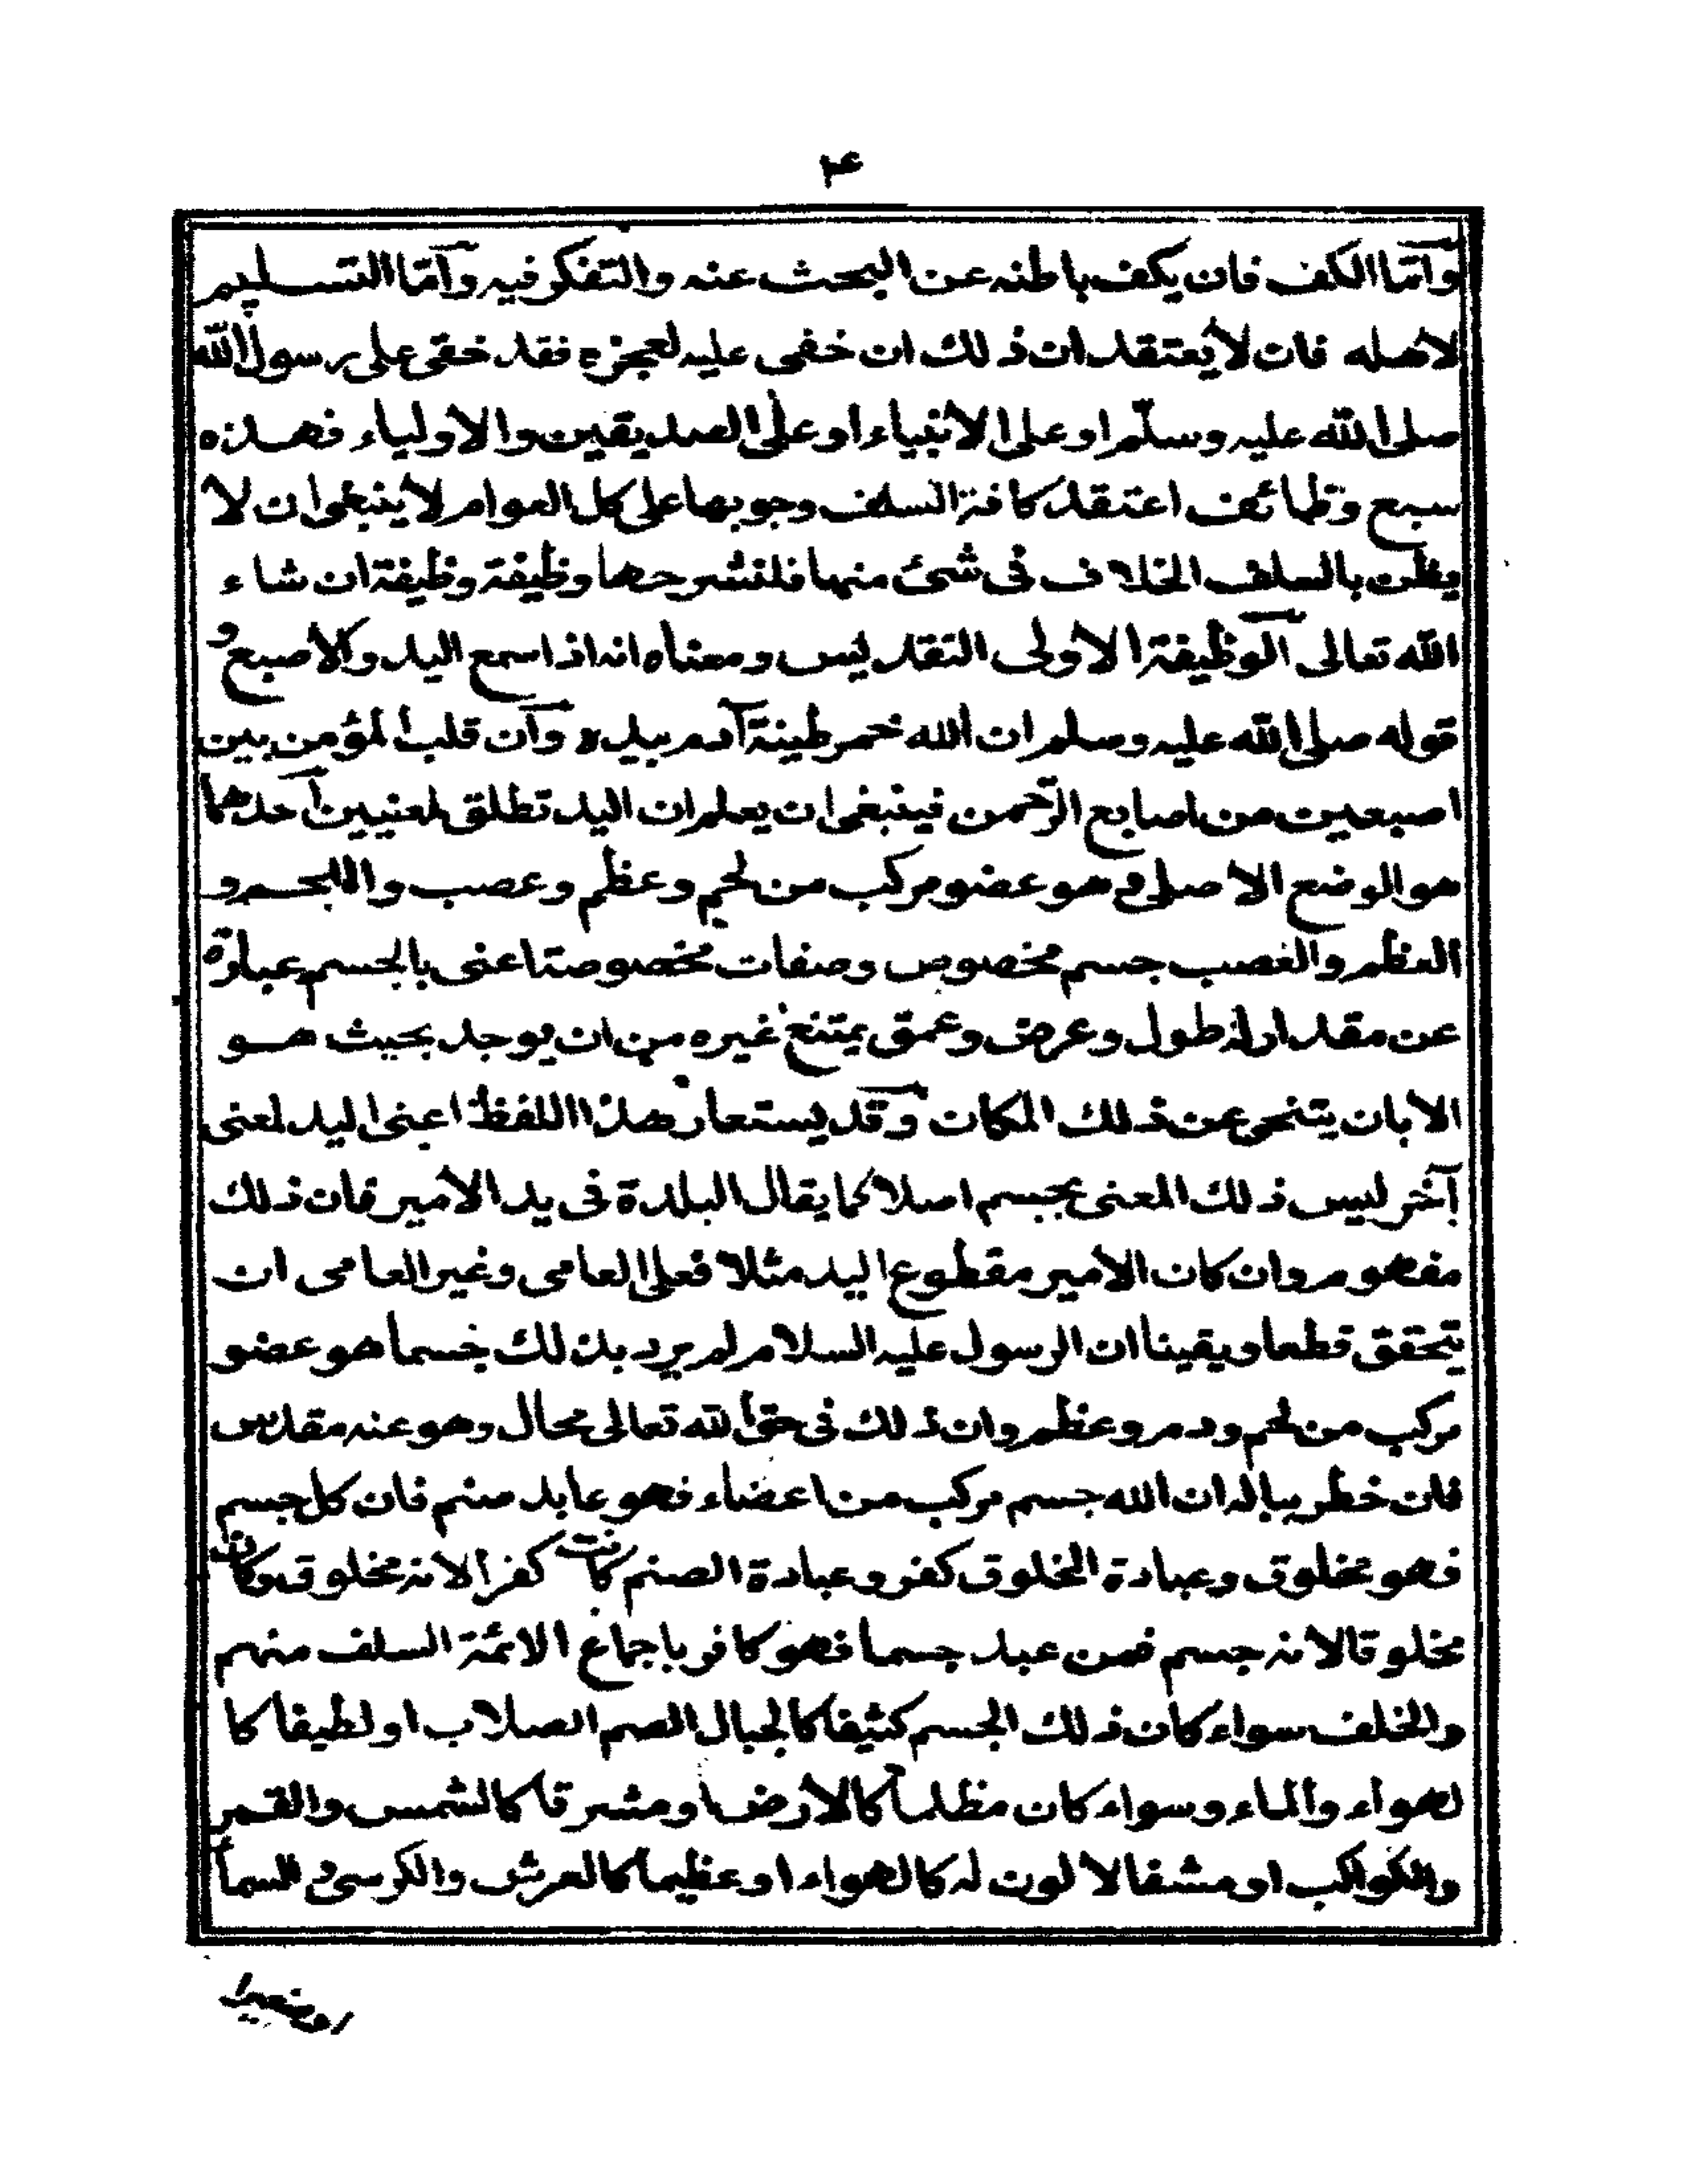 ۴
وأمّا الكف فان يكف باطنه عن البحث عنه والتفكر فيه وأمّا التسليم
لاهله فان لا يعتقد ان ذلك ان خفى عليه لعجزه فقد خفى على رسول الله
صلى الله عليه وسلّم او على الانبياء او على الصديقين والاولياء فهذه
سبع وظائف اعتقد كافة السلف وجوبها على كل العوام لا ينبغى ان لا
يظن بالسلف الخلاف فى شئ منها فلنشرحها وظيفة وظيفة ان شاء
الله تعالى الوظيفة الاولى التقديس ومعناه انه اذا سمع اليد والاصبع و
قوله صلى الله عليه وسلم ان الله خمر طينة آدم بيده وان قلب المؤمن بين
اصبعين من اصابع الرّحمن فينبغى ان يعلم ان اليد تطلق لمعنيين احدهما
هو الوضع الاصلى و هو عضو مركب من لحم وعظم وعصب واللحم و
العظم والعصب جسم مخصوص وصفات مخصوصة اعنى بالجسم عبارة
عن مقدار له طول وعرض وعمق يمتنع غيره من ان يوجد بحيث هو
الا بان يتنحى عن ذلك المكان وقد يستعار هذا اللفظ اعنى اليد لمعنى
آخر ليس ذلك المعنى بجسم اصلا كما يقال البلدة فى يد الأمير فان ذلك
مفهوم وان كان الأمير مقطوع اليد مثلا فعلى العامى وغير العامى ان
يتحقق قطعا ويقينا ان الرسول عليه السلام لم يرد بذلك جسما هو عضو
مركب من لحم ودم وعظم وان ذلك فى حق الله تعالى محال وهو عنه مقدس
فان خطر بباله ان الله جسم مركب من اعضاء فهو عابد صنم فان كل جسم
فهو مخلوق وعبادة المخلوق كفر وعبادة الصنم كانت كفرا لانه مخلوق وكان
مخلوقا لانه جسم فمن عبد جسما فهو كافر باجماع الائمة السلف منهم
والخلف سواء كان ذلك الجسم كثيفا كالجبال الصم الصلاب او لطيفا كا
لهواء والماء وسواء كان مظلما كالارض او مشرقا كالشمس والقمر
والكواكب او مشفا لا لون له كالهواء او عظيما كالعرش والكرسى و السما